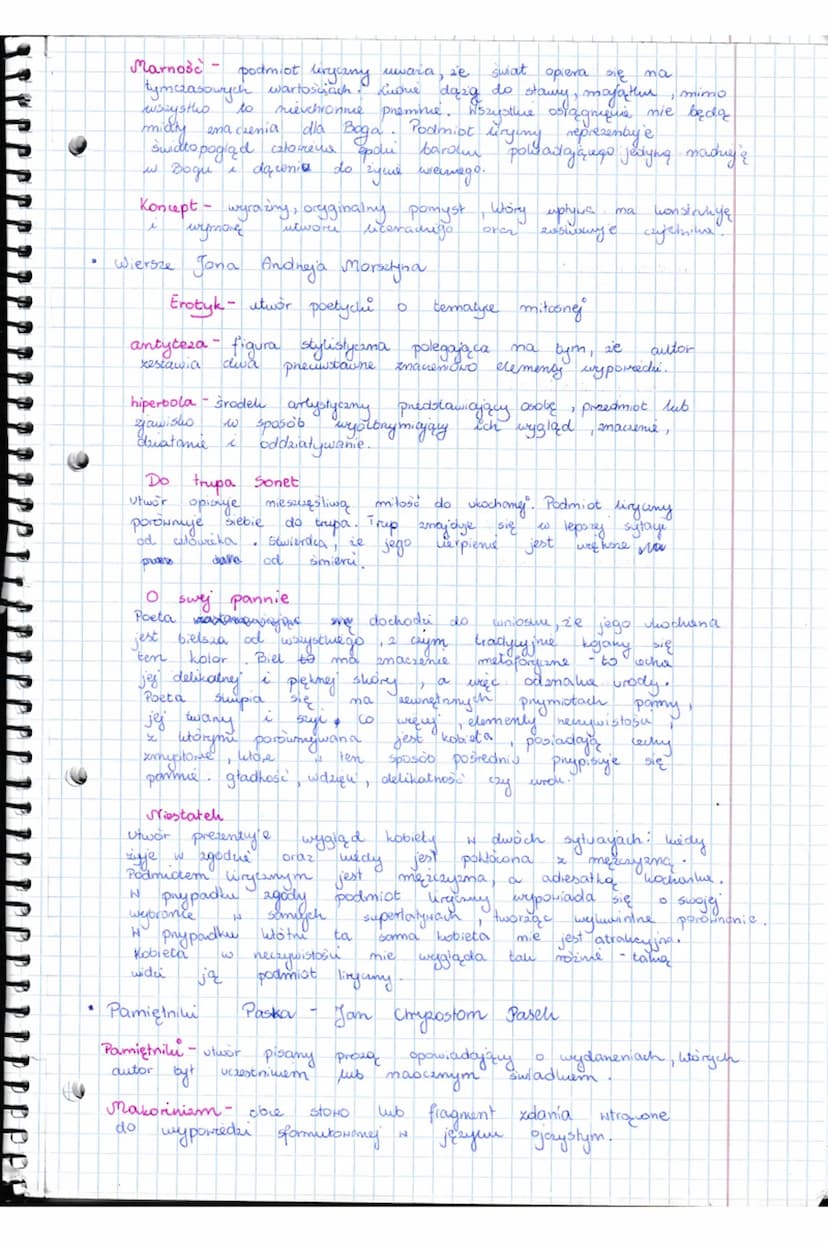 Marność - podmiot liryczny uważa, że świat opiera się na
tymczasowych wartościach. Ludzie dążą do sławy, majątku, mimo
wszystko to niechronnie przemnie. Wszystkie osiągnięcia nie będą
miały znaczenia dla Boga. Podmiot liryczny reprezentuje
światopogląd człowieka epoki baroku pokładającego jedyną nadzieję
w Bogu i dążeniu do życia wiecznego.
Koncept - wyraźny, oryginalny pomysł, który wpływa na konstrukcję
i wymowę utworu literackiego oraz zaskakuje czytelnika.
• Wiersze Jana Andrzeja Morsztyna
Erotyk - utwór poetycki o tematyce miłosnej
antyteza - figura stylistyczna polegająca na tym, że autor
zestawia dwa przeciwstawne znaczeniowo elementy wypowiedzi.
hiperbola - środek artystyczny przedstawiający osobę, przedmiot lub
zjawisko w sposób wyolbrzymiający ich wygląd, znaczenie,
działanie i oddziaływanie.
Do trupa Sonet
utwór opisuje nieszczęśliwą miłość do ukochanej. Podmiot liryczny
porównuje siebie do trupa. Trup znajduje się w lepszej sytuacji
od człowieka. Stwierdza, że jego cierpienie jest większe
od śmierci.
O swej pannie
Poeta dochodzi do wniosku, że jego ukochana
jest bielsza od wszystkiego, z czym tradycyjnie kojarzy się
ten kolor. Biel ma znaczenie metaforyczne - to cecha
jej delikatnej i pięknej skóry, a więc oznaka urody.
Poeta skupia się na zewnętrznych przymiotach panny,
jej twarzy i szyi, co więcej, elementy rzeczywistości,
z którymi porównywana jest kobieta, posiadają cechy
zmysłowe, które w ten sposób pośrednio przypisuje się
pannie. gładkość, wdzięk, delikatność czy urok.
Niestatek
utwór prezentuje wygląd kobiety w dwóch sytuacjach: kiedy
żyje w zgodzie oraz kiedy jest pokłócona z mężczyzną.
Podmiotem lirycznym jest mężczyzna, a adresatką kochanka.
W przypadku zgody podmiot liryczny wypowiada się o swojej
wybrance w samych superlatywach, tworząc wykwintne porównanie.
W przypadku kłótni ta sama kobieta nie jest atrakcyjna.
Kobieta w rzeczywistości nie wygląda tak różnie - taką
widzi ją podmiot liryczny.
• Pamiętniki Paska - Jan Chryzostom Pasek
Pamiętniki - utwór pisany prozą opowiadający o wydarzeniach, których
autor był uczestnikiem lub naocznym świadkiem.
Makaronizm - obce słowo lub fragment zdania wtrącone
do wypowiedzi sformułowanej w języku ojczystym.